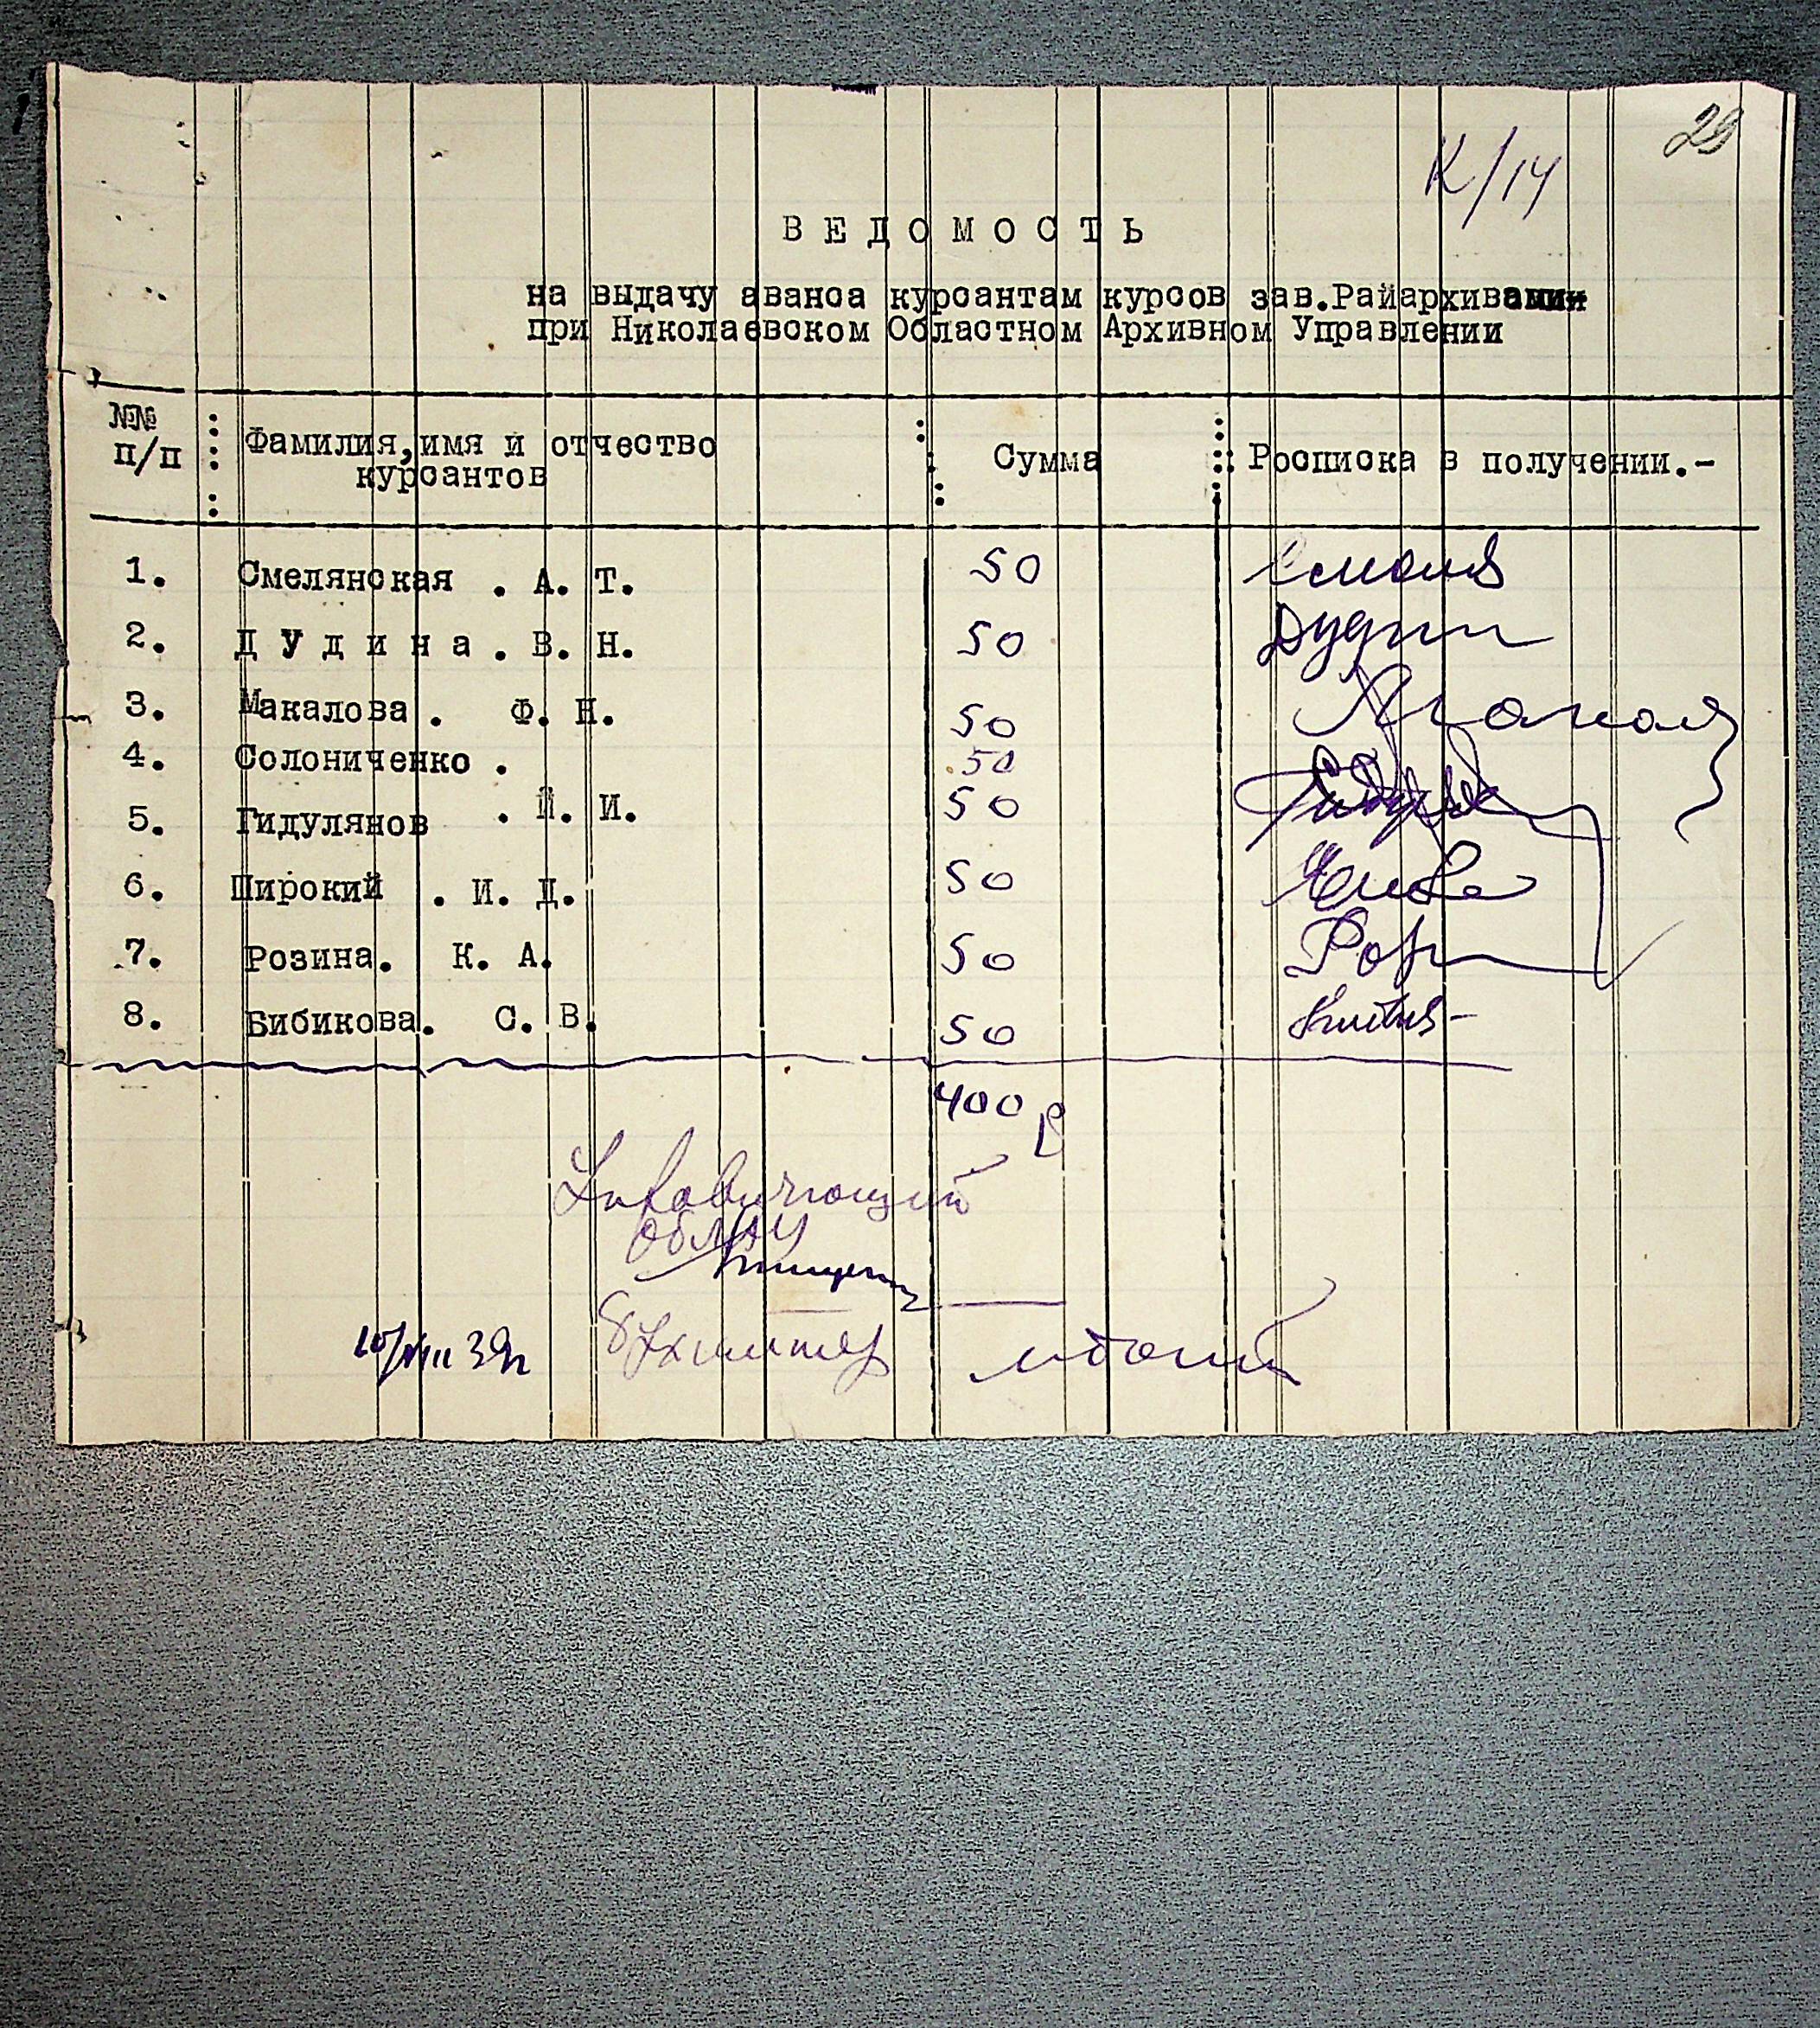 29
К/14
ВЕДОМОСТЬ
на выдачу аванса курсантам курсов зав.Райархивами
при Николаевском Областном Архивном Управлении
№№ п/п Фамилия,имя и отчество курсантов Сумма Росписка в получении.-
1. Смелянская . А. Т. 50
2. Дудина. В. Н. 50 Дудин
3. Макалова . Ф. Н. 50
4. Солониченко . 50
5. Гидулянов . И. 50
6. Широкий . И. Д. 50
7. Розина. К. А. 50 Роз
8. Бибикова. С. В. 50
400 р
Заведующий
ОблАУ
10/VIII 39г Бухгалтер